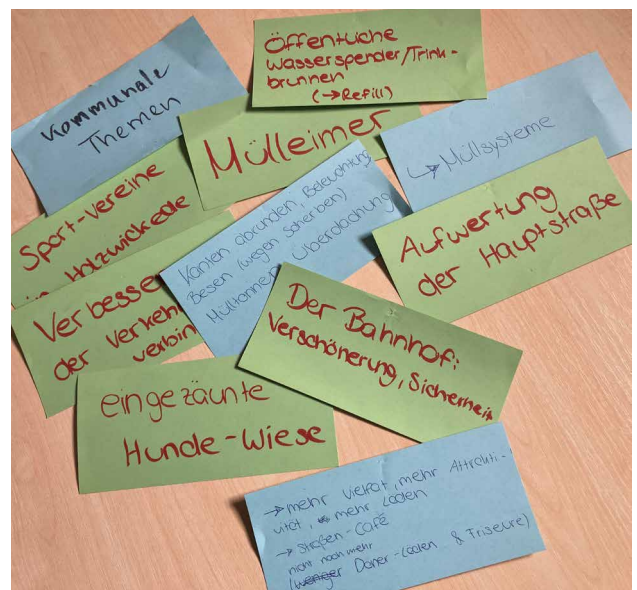 Öffentliche
Wasserspender/Trink-
brunnen
(→Refill)
Kommunale
Themen
Mülleimer
↳ Müllsysteme
Sport-Vereine
in Holzwickede
Kanten abrunden, Beleuchtung
Besen (wegen Scherben)
Mülltonnen Überdachung
Aufwertung
der Hauptstraße
Verbesse
der Verkeh
verbin
Der Bahnhof:
Verschönerung, Sicherheit
eingezäunte
Hunde-Wiese
→ mehr Vielfalt, mehr Attrakti-
vität, mehr Läden
→ Straßen-Café
nicht noch mehr
(weniger Döner-Läden & Friseure)